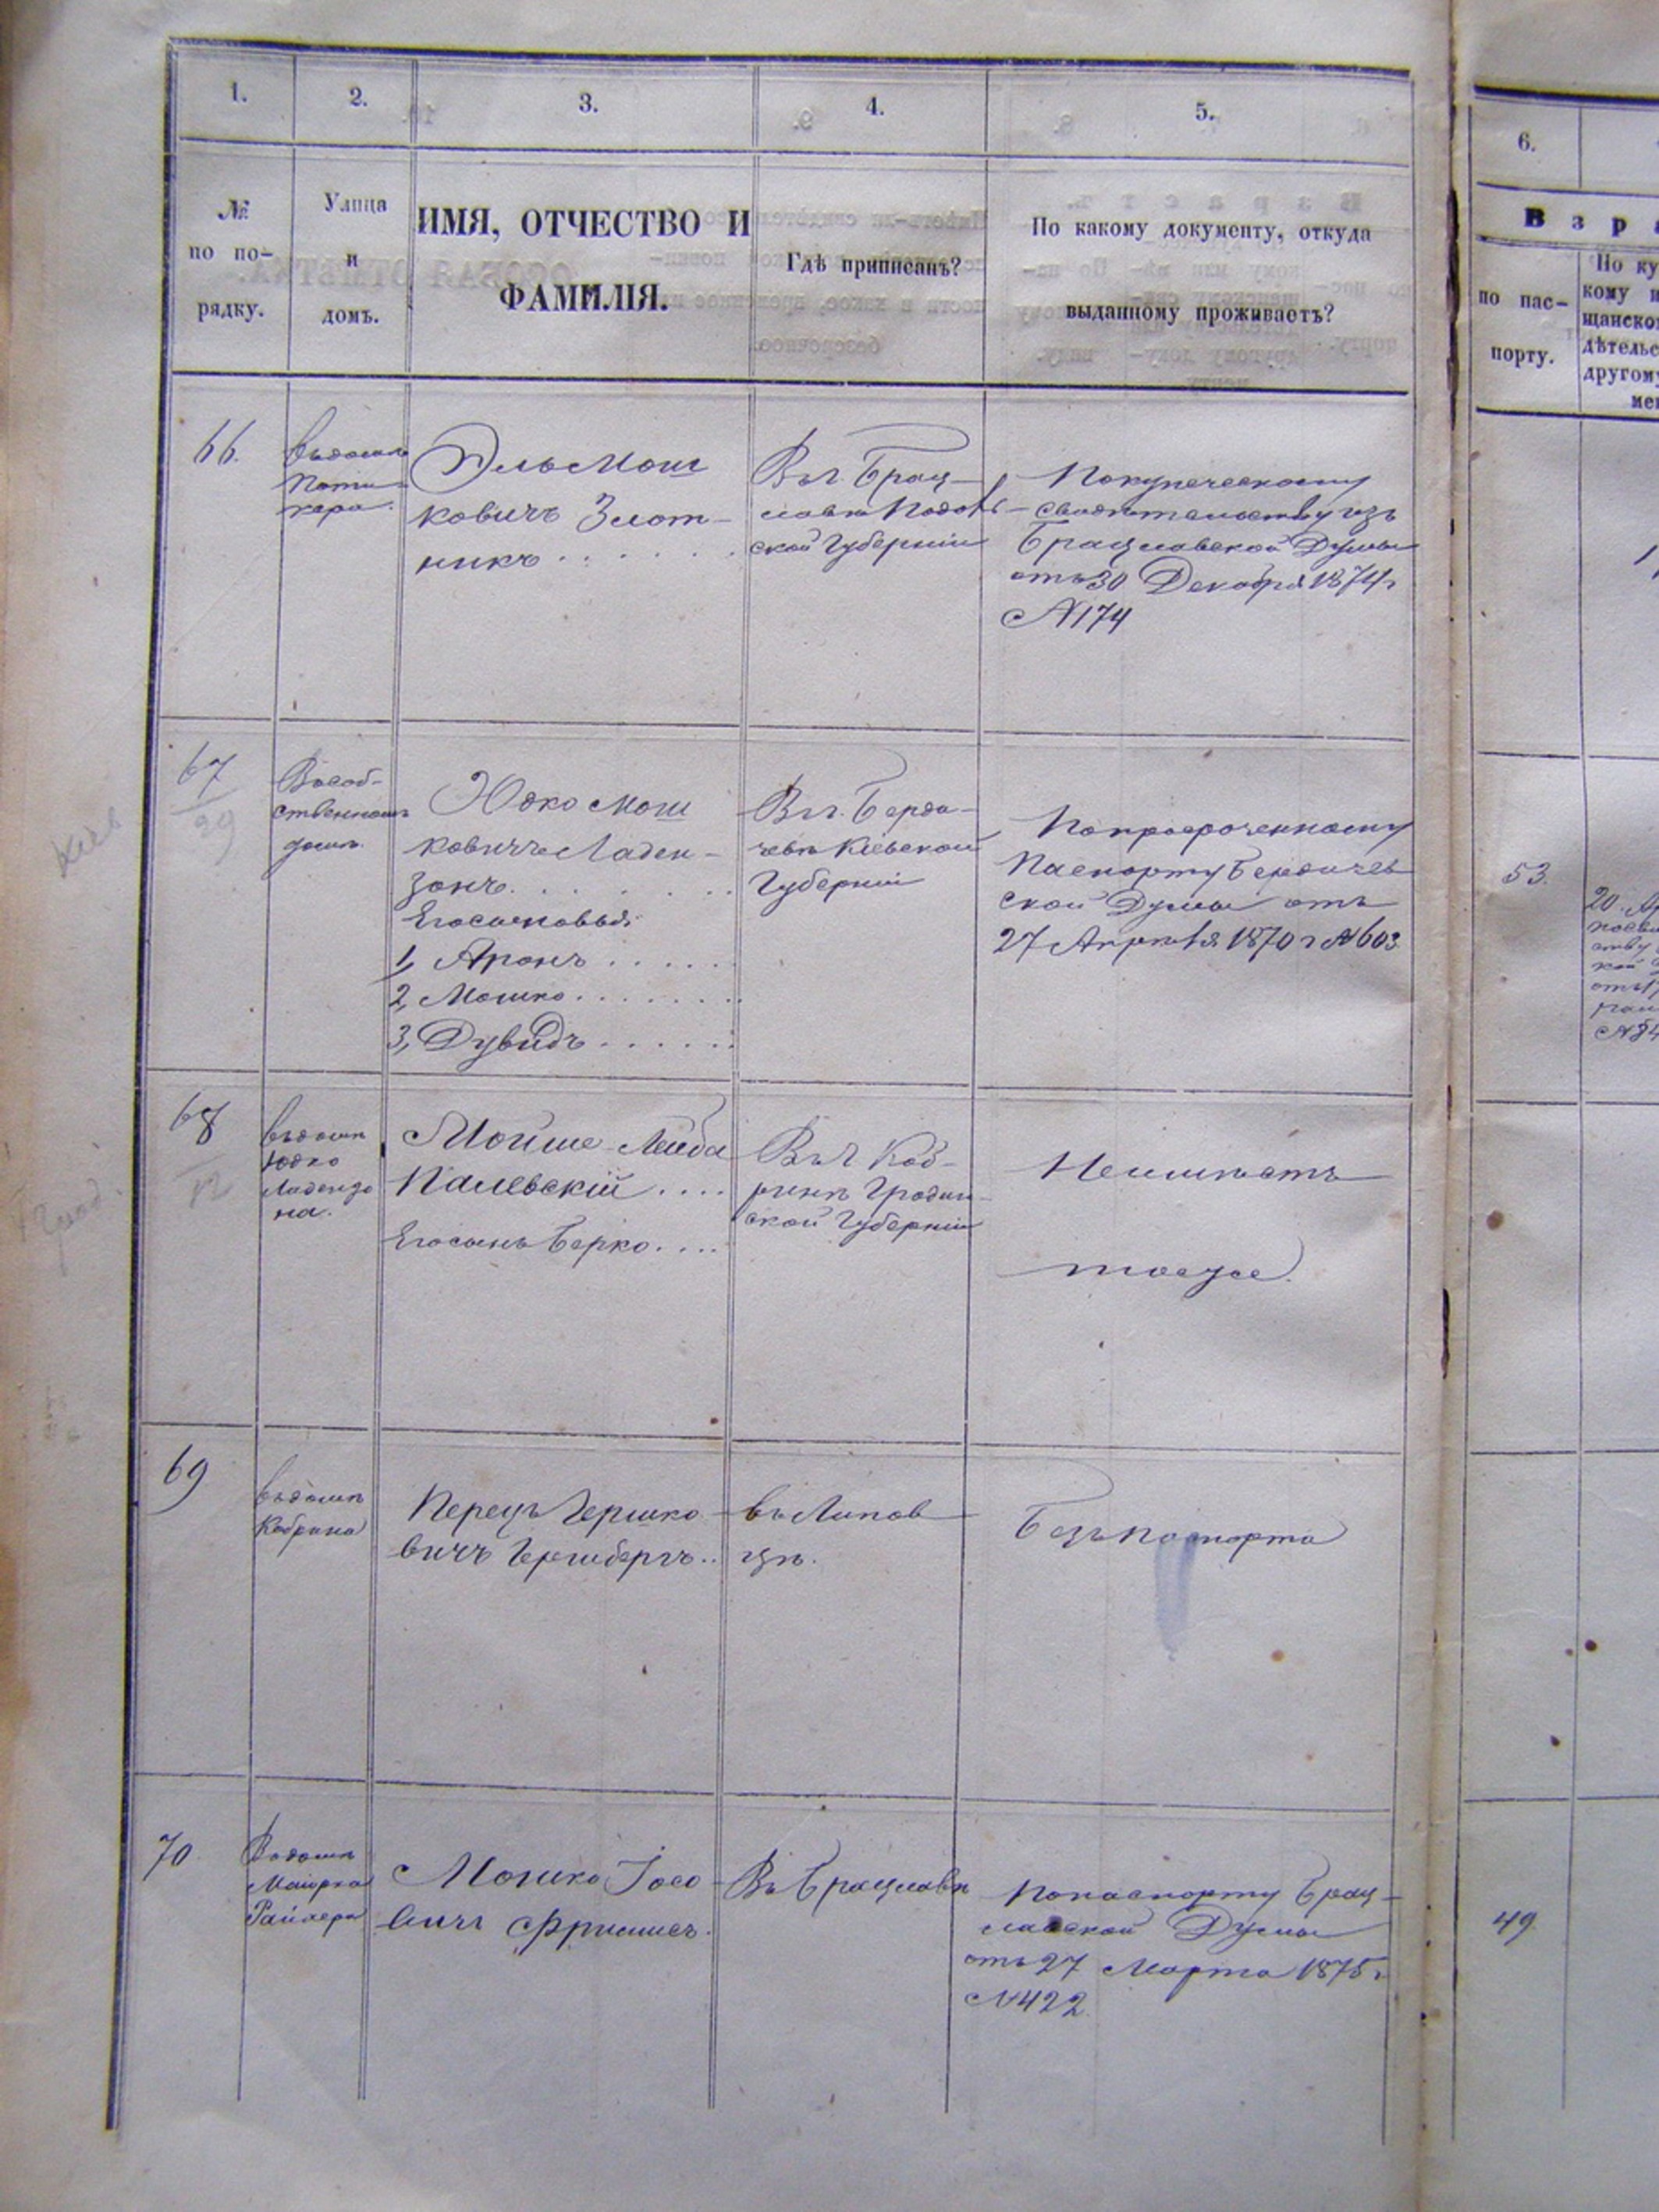 1.
2.
3.
4.
5.
6.
№
по по-
рядку.
Улица
и
домъ.
ИМЯ, ОТЧЕСТВО И
ФАМИЛІЯ.
Гдѣ приписанъ?
По какому документу, откуда
выданному проживаетъ?
В з р а
по пас-
порту.
По ку
кому и
щанско
дѣтельс
другому
мен
66.
въ домѣ
Эль Мош
ковичъ Злот-
никъ
Въ г. Брац-
лавѣ Подоль-
ской Губерніи
По купеческому
свидѣтельству изъ
Брацлавской Думы
отъ 30 Декабря 1874 г
№ 174
67
29
Въ соб-
ственномъ
домѣ.
Юдко Мош
ковичъ Ладен-
зонъ
Его сыновья
1, Аронъ
2, Мошко
3, Дувидъ
Въ г. Берди-
чевѣ Кіевской
Губерніи
По просроченному
паспорту Бердичев
ской Думы отъ
27 Апрѣля 1870 г № 603
53.
68
12
въ домѣ
Юдко
Ладензо
на.
Мойше-Лейба
Палевскій
Его сынъ Берко
Въ г. Коб-
ринѣ Гроднен-
ской Губерніи
Не имѣетъ
тоже.
69
въ домѣ
Кобрина
Перецъ Гершко
вичъ Гершбергъ
въ Липов
цѣ.
Безъ паспорта
70
Въ домѣ
Маіорка
Мошко Іосо
вичъ
Въ Брацлавѣ
По паспорту Брац-
лавской Думы
отъ 27 Марта 1875 г
№ 422
49